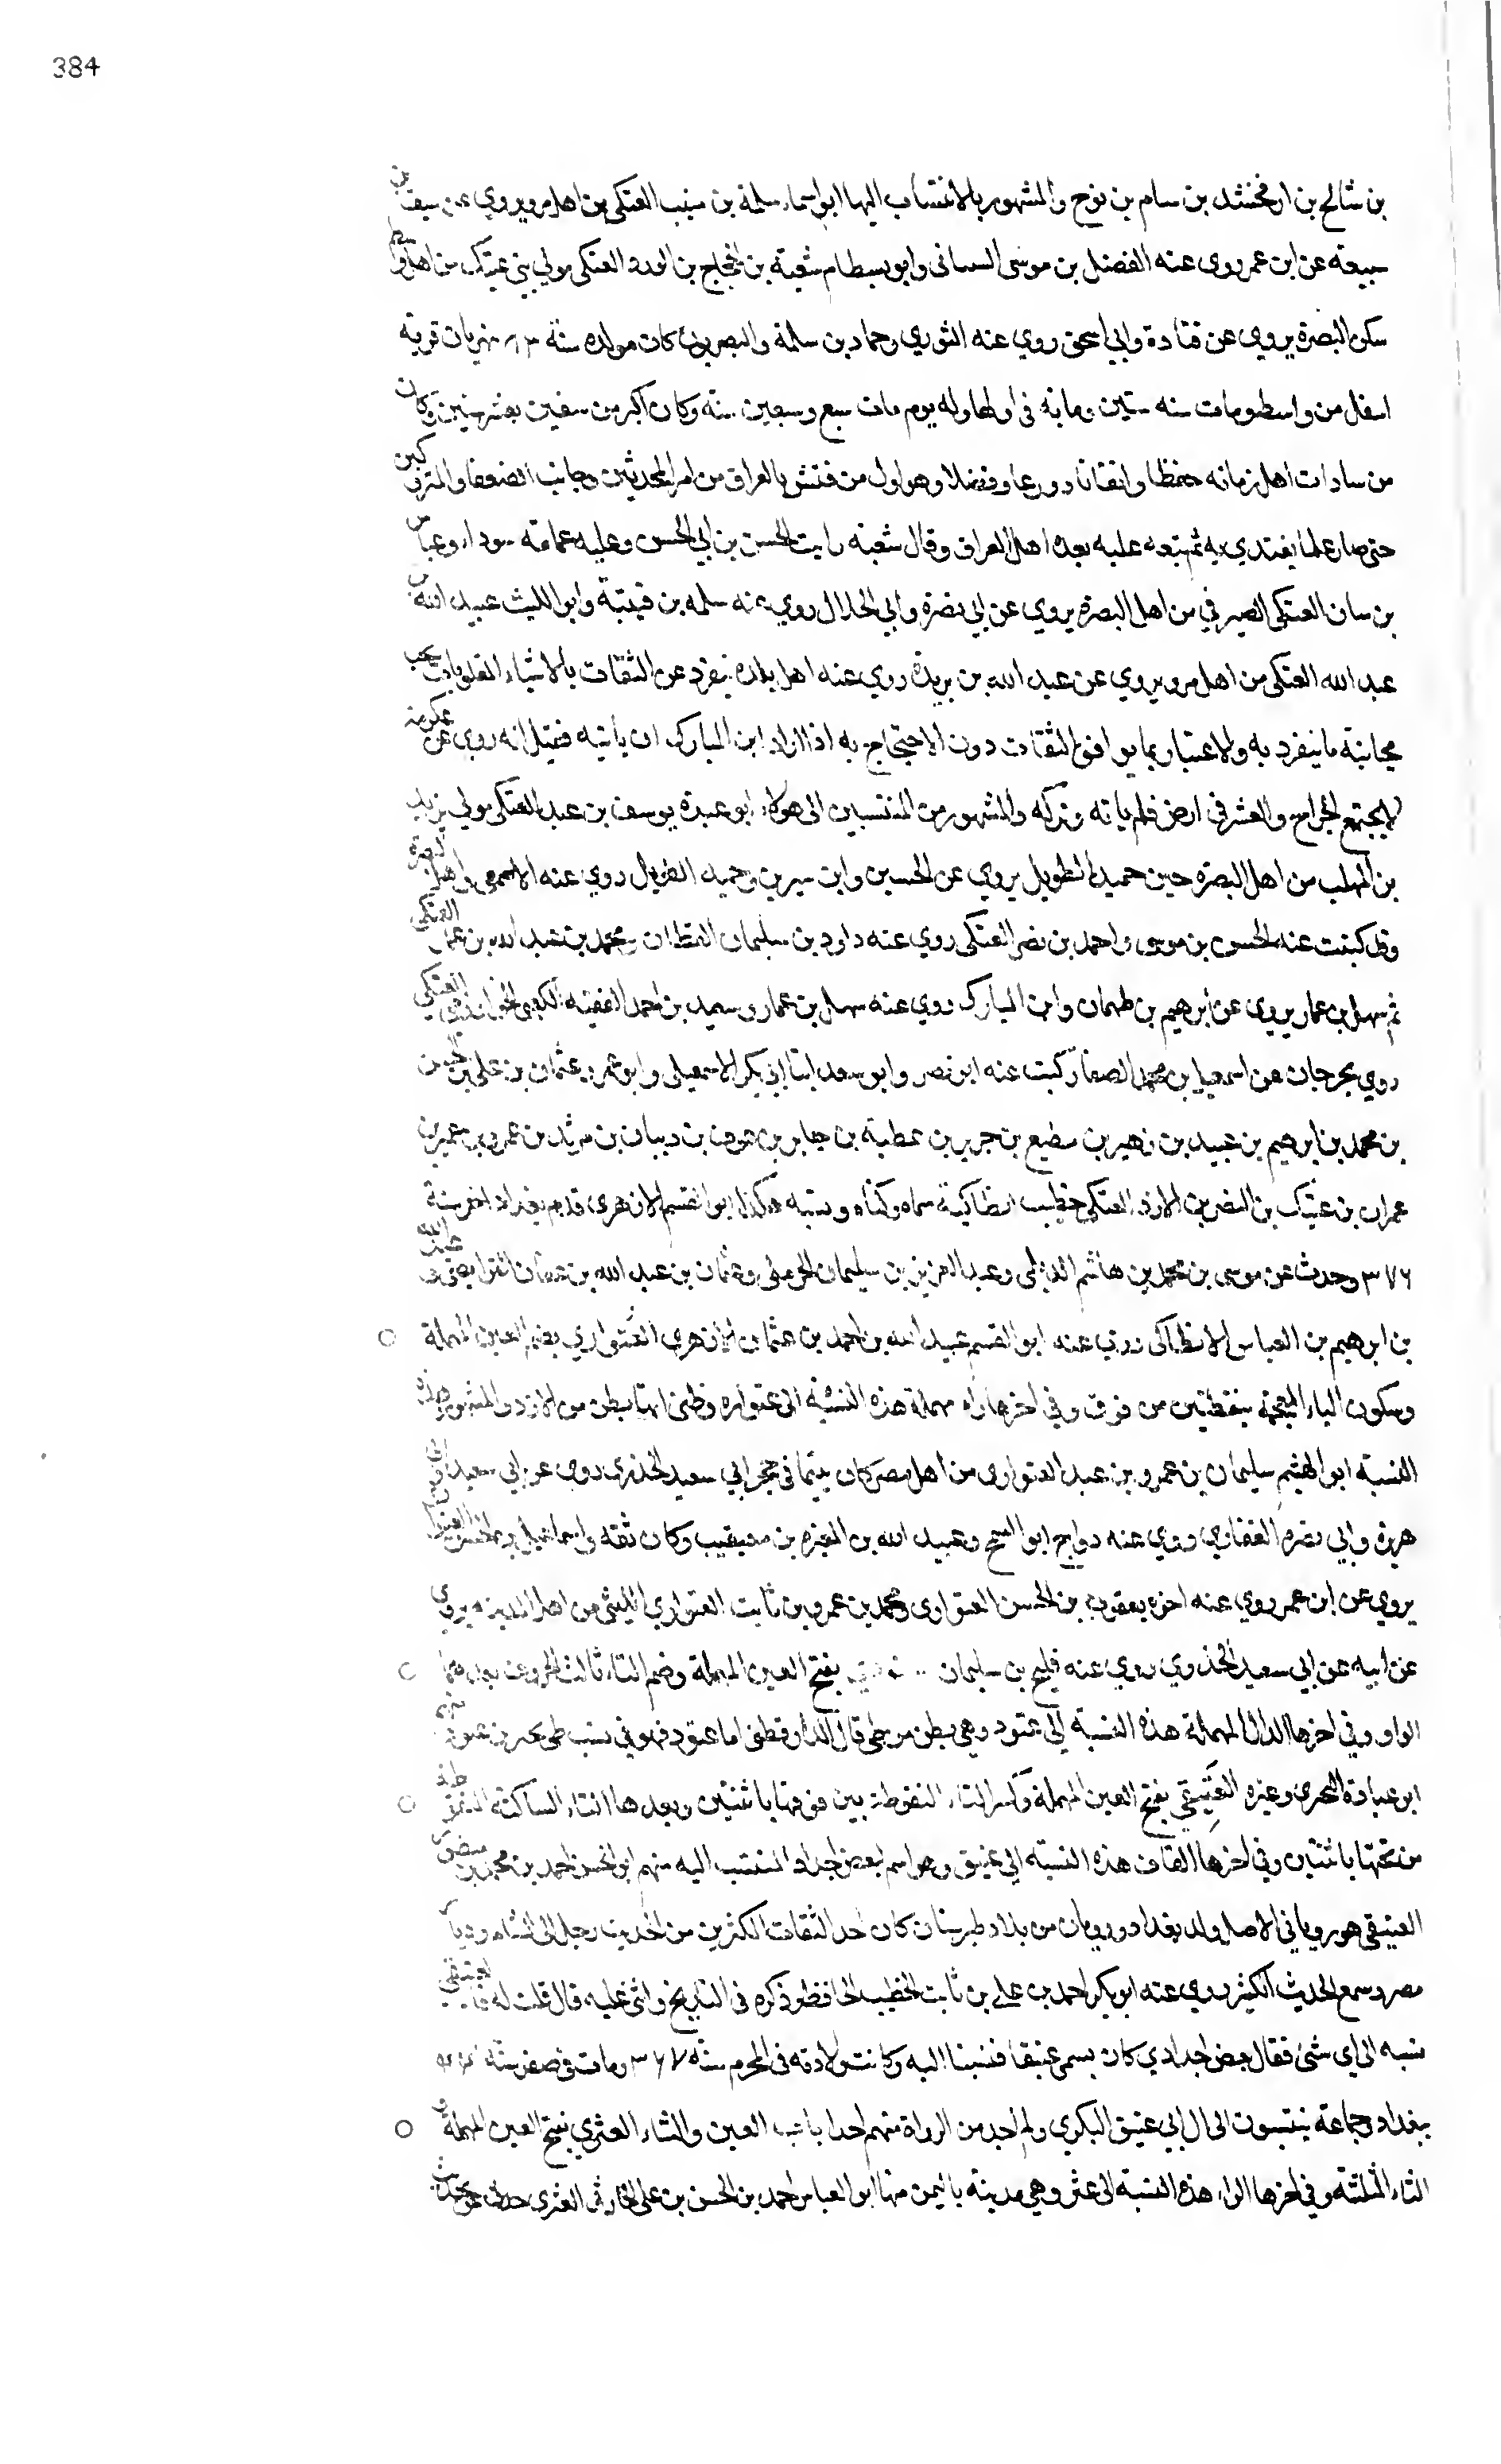 384
بن شالخ بن ارفخشد بن سام بن نوح والمشهور بالانتساب اليها ابو اسماء سلمة بن العتكي من اهل مرو يروي عن
سبيعة عن ابن عمر روى عنه الفضل بن موسى السيناني وابو بسطام شعبة بن الحجاج بن الورد العتكي مولي بني عتيك من اهل واسط
سكن البصرة يروى عن قتادة وابي اسحق روي عنه الثوري وحماد بن سلمة والبصريون كان مولده سنة ٨٣ بنهربان قرية
اسفل من واسط ومات سنه ستين ومايه في اولها وله يوم مات سبع وسبعين سنه وكان اكبر من سفين بعشر سنين وكان
من سادات اهل زمانه حفظا واتقانا وورعا وفضلا وهو اول من فتش بالعراق من امر المحدثين وجانب الضعفا والمتروكين
حتى صار علما يقتدي به ثم تبعه عليه بعده اهل العراق وقال شعبه رايت الحسن بن ابي الحسن وعليه عمامة سوداء
بن العتكي الصيرفي من اهل البصرة يروي عن ابي نضرة وابي الحلال روي عنه سلمه بن قتيبة وابو الليث عبيد الله بن
عبد الله العتكي من اهل مرو يروي عن عبد الله بن بريدة روي عنه اهل بلده ينفرد عن الثقات بالاشياء المقلوبات يجب
مجانبة ما ينفرد به والاعتبار بما يوافق الثقات دون الاحتجاج به اذا اراد ابن المبارك ان ياتيه فقيل انه روي عن عكرمة
لا يجتمع الخراج والعشر في ارض فلم ياته وتركه والمشهور من المنتسبين الى هولاء ابو عبدة يوسف بن عبد العتكي مولي يزيد
بن المهلب من اهل البصرة حميد الطويل يروي عن الحسن وابن سيرين وحميد روي عنه الاصمعي واهل البصرة
وقد كتبت عنه الحسين بن موسى واحمد بن نصر العتكي روي عنه داود بن سليمان القطان ومحمد بن عبد الله بن عمار العتكي
ثم سهل بن عمار يروي عن ابرهيم بن طهمان وابن المبارك روي عنه سهل بن عمار وسعيد بن احمد الفقيه العتكي
روي بجرجان عن اسمعيل بن محمد الصفار كتبت عنه ابو نصر وابو سعد ابنا ابي بكر الاسمعيلي وابو عمرو عثمان بن علي بن الحسن
بن محمد بن ابرهيم بن عبيد بن زهير بن مطيع بن جرير بن عطية بن جابر بن عوف بن دبيان بن مرثد بن عمرو بن عمير بن
عمران بن عتيك بن النضر بن الازد العتكي خطيب انطاكية سماه وكناه ونسبه هكذا ابو القسم الازهري قدم بغداد اخر سنة
٣٧٦ وحدث عن موسى بن محمد بن هاشم الديلمي وعبد العزيز بن سليمان الحرملي وعثمان بن عبد الله بن عفان
بن ابرهيم بن العباس الانطاكي روي عنه ابو القسم عبيد الله بن احمد بن عثمان الازهري العتواري بضم العين المهملة
وسكون التاء المعجمة بنقطتين من فوق وفي اخرها راء مهملة هذه النسبة الى عتوارة وظني انها بطن من الازد والمشهور بهذه
النسبة ابو الهيثم سليمان بن عمرو بن عبد العتواري من اهل مصر كان يتيما في حجر ابي سعيد الخدري روى عن ابي سعيد وابي
هريرة وابي نضرة الغفاري روي عنه دراج ابو السمح وعبيد الله بن المغيرة بن معيقيب وكان ثقه
يروي عن ابن عمر روي عنه اخوه يعقوب بن الحسن العتواري ومحمد بن عمرو بن ثابت العتواري الليثي من اهل المدينه يروي
عن ابيه عن ابي سعيد الخدري روي عنه فليح بن سليمان بفتح العين المهملة وضم التاء ثالث الحروف بعدهما
الواو وفي اخرها الدال المهملة هذه النسبه الى عتود وهي بطن من طي قال الدارقطني اما عتود فهو في نسب طي بحتر بن عتود منهم
ابو عبادة البحتري وغيره العتيقي بفتح العين المهملة وكسر التاء المنقوطة من فوقها باثنتين وبعدها الياء الساكنه المنقوطة
من تحتها باثنتين وفي اخرها القاف هذه النسبة الي عتيق وهو اسم لبعض اجداد المنتسب اليه منهم ابو الحسن احمد بن محمد بن منصور
العتيقي هو روياني الاصل ولد بغداد ورويان من بلاد طبرستان كان احد الثقات المكثرين من الحديث رحل الى الشام وديار
مصر وسمع الحديث الكثير روي عنه ابو بكر احمد بن علي بن ثابت الخطيب الحافظ وذكره في التاريخ واثنى عليه قال قلت له العتيقي
نسبه الى اي شئ فقال بعض اجدادي كان يسمى عتيقا فنسبنا اليه وكانت ولادته في المحرم سنة ٣٦٧ ومات في صفر سنة
ببغداد وجماعة ينتسبون الى ال ابي عتيق البكري ولم اجد من الرواة منهم احدا باب العين والثاء العثري بفتح العين المهملة و
الثاء المثلثة وفي اخرها الراء هذه النسبة الى عثر وهي مدينة باليمن منها ابو العباس احمد بن الحسن بن علي الحارثي العثري